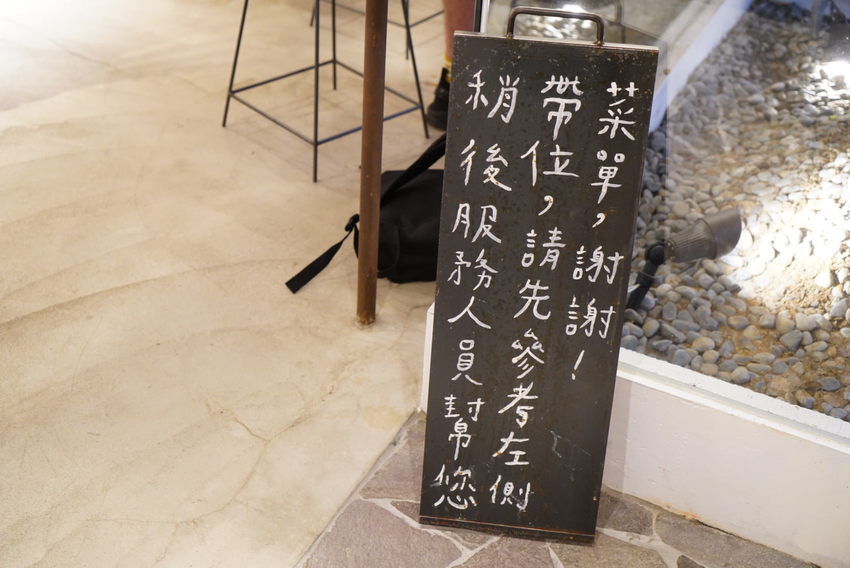 稍後服務人員幫您
帶位，請先參考左側
菜單，謝謝！